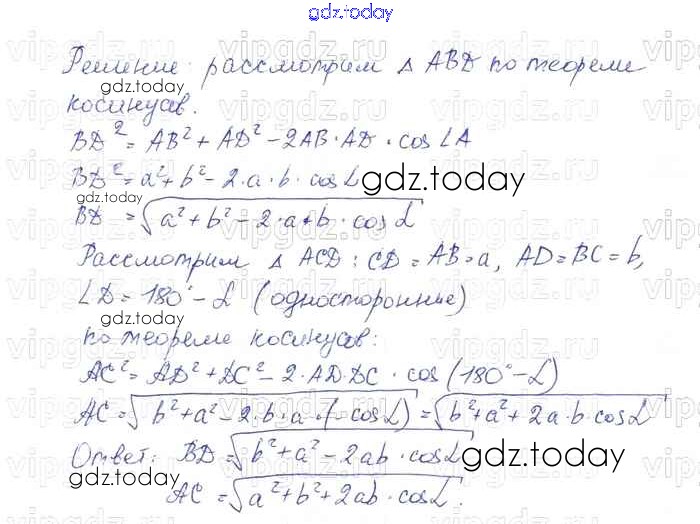 gdz.today
Решение: рассмотрим △ ABD по теореме
косинусов.
BD² = AB² + AD² - 2AB · AD · cos ∠A
BD² = a² + b² - 2 · a · b · cos α
gdz.today
BD = √(a² + b² - 2 · a · b · cos α)
Рассмотрим △ ACD : CD = AB = a, AD = BC = b,
∠D = 180° - α (односторонние)
gdz.today
по теореме косинусов:
AC² = AD² + DC² - 2 · AD · DC · cos (180° - α)
gdz.today
AC = √(b² + a² - 2 · b · a · (- cos α)) = √(b² + a² + 2a · b cos α)
Ответ: BD = √(b² + a² - 2ab · cos α)
gdz.today
gdz.today
AC = √(a² + b² + 2ab · cos α).